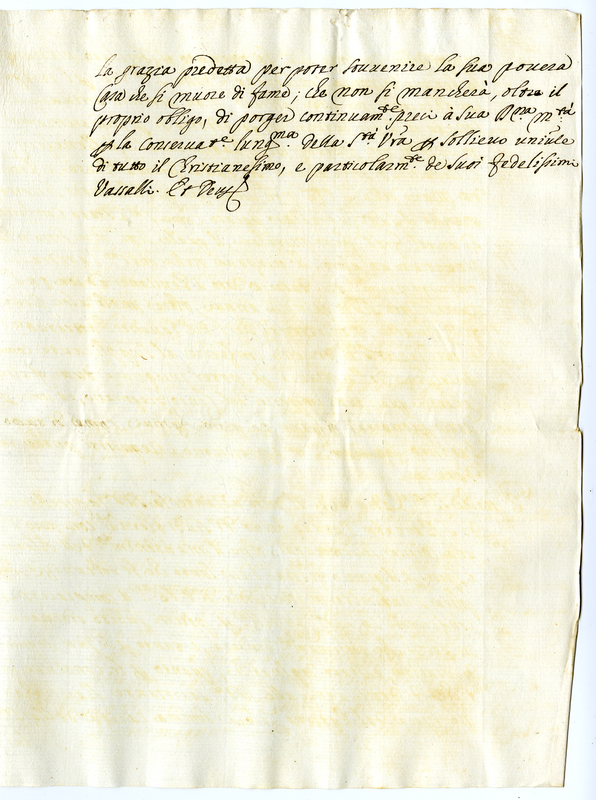 la grazia predetta per poter souvenire la sua povera
Casa che si muore di fame; che non si mancherà, oltre il
proprio obligo, di porger continuam.te preci à Sua D.na M.tà
ꝑ la conservat.e lung.ma della S.tà V.ra ꝑ sollievo univ.le
di tutto il Christianesimo, e particolarm.te de suoi fedelissimi
Vassalli. Et Deus